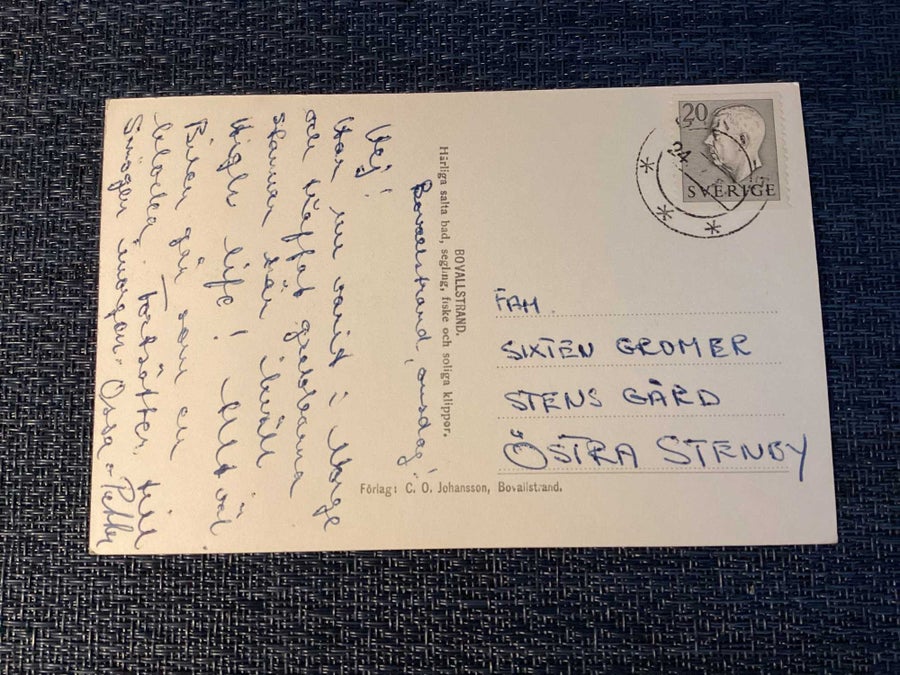 Bovallstrand, onsdag!
Hej!
Har nu varit i Norge
och träffat grabbarna
stannar här ikväll
High life! Allt väl
Bilen går som en
klocka, Fortsätter till
Smögen imorgon. Ossa - 
BOVALLSTRAND.
Härliga salta bad, segling, fiske och soliga klippor.
Förlag: C. O. Johansson, Bovallstrand.
20
SVERIGE
24
FAM.
SIXTEN GROMER
STENS GÅRD
ÖSTRA STENBY